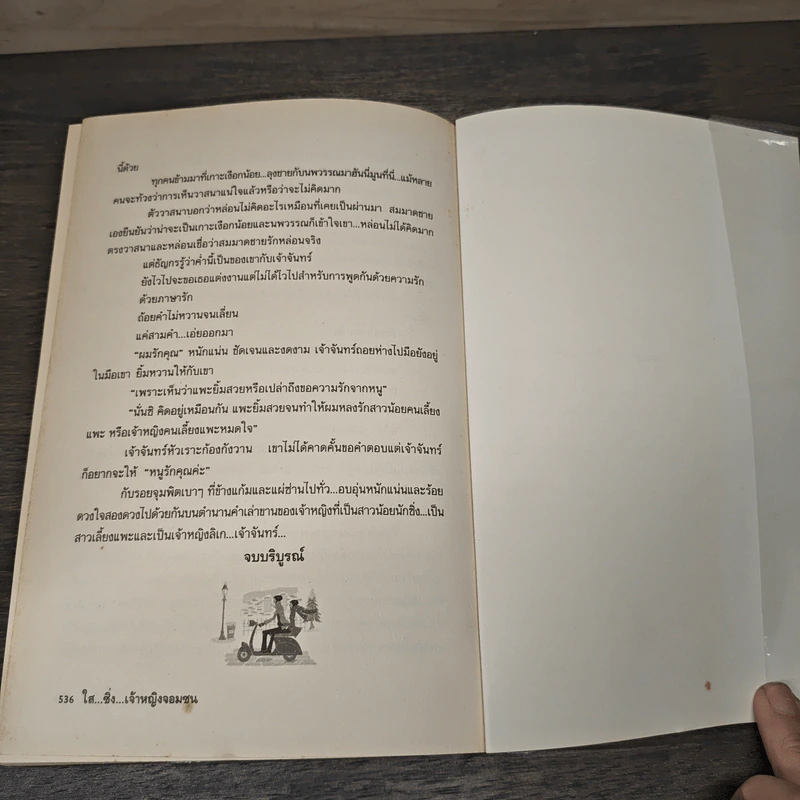 นี้ด้วย
ทุกคนข้ามมาที่เกาะเงือกน้อย...ลุงชายกับนพวรรณมาฮันนีมูนที่นี่...แม้หลาย
คนจะท้วงว่าการเห็นวาสนาแน่ใจแล้วหรือว่าจะไม่คิดมาก
ตัววาสนาบอกว่าหล่อนไม่คิดอะไรเหมือนที่เคยเป็นผ่านมา สมมาดชาย
เองยืนยันว่าน่าจะเป็นเกาะเงือกน้อยและนพวรรณก็เข้าใจเขา...หล่อนไม่ได้คิดมาก
ตรงวาสนาและหล่อนเชื่อว่าสมมาดชายรักหล่อนจริง
แต่ธัญกรรู้ว่าค่ำนี้เป็นของเขากับเจ้าจันทร์
ยังไวไปจะขอเธอแต่งงานแต่ไม่ได้ไวไปสำหรับการพูดกันด้วยความรัก
ด้วยภาษารัก
ถ้อยคำไม่หวานจนเลี่ยน
แค่สามคำ...เอ่ยออกมา
“ผมรักคุณ” หนักแน่น ชัดเจนและงดงาม เจ้าจันทร์ถอยห่างไปมือยังอยู่
ในมือเขา ยิ้มหวานให้กับเขา
“เพราะเห็นว่าแพะยิ้มสวยหรือเปล่าถึงขอความรักจากหนู”
“นั่นซิ คิดอยู่เหมือนกัน แพะยิ้มสวยจนทำให้ผมหลงรักสาวน้อยคนเลี้ยง
แพะ หรือเจ้าหญิงคนเลี้ยงแพะหมดใจ”
เจ้าจันทร์หัวเราะก้องกังวาน เขาไม่ได้คาดคั้นขอคำตอบแต่เจ้าจันทร์
ก็อยากจะให้ “หนูรักคุณค่ะ”
กับรอยจุมพิตเบาๆ ที่ข้างแก้มและแผ่ซ่านไปทั่ว...อบอุ่นหนักแน่นและร้อย
ดวงใจสองดวงไปด้วยกันบนตำนานคำเล่าขานของเจ้าหญิงที่เป็นสาวน้อยนักซิ่ง...เป็น
สาวเลี้ยงแพะและเป็นเจ้าหญิงลิเก...เจ้าจันทร์...
จบบริบูรณ์
536 ใส...ซิ่ง...เจ้าหญิงจอมซน